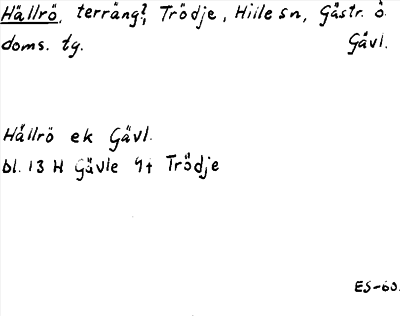 Hållrö, terräng?, Trödje, Hille sn, Gästr. ö.
doms. tg. Gävl.
Hållrö ek Gävl.
bl. 13 H Gävle 4t Trödje
ES-60.